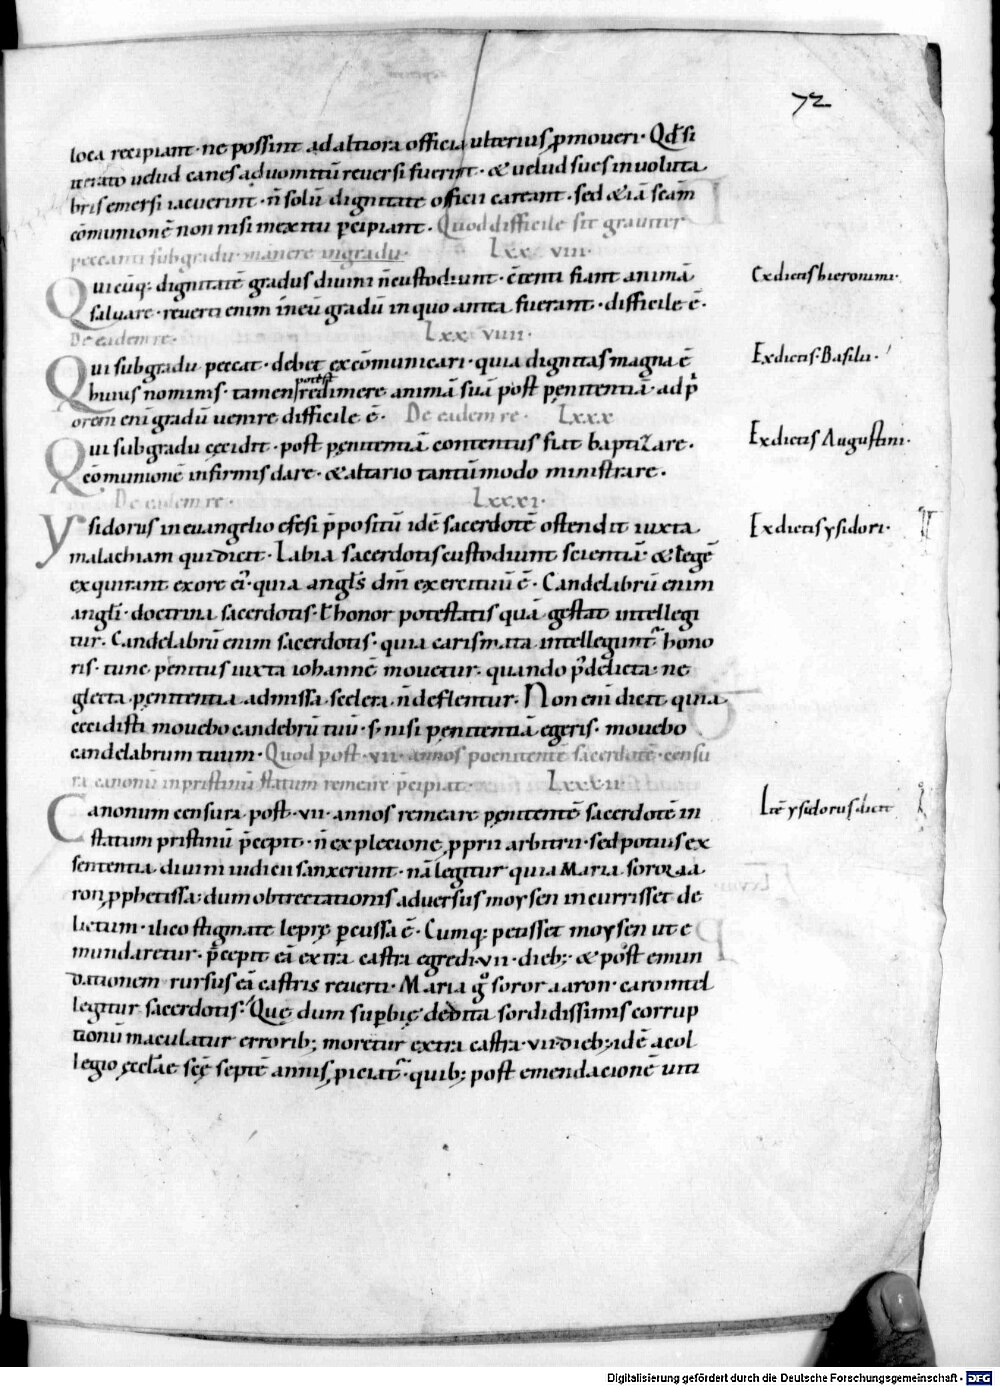 72
loca recipiant · ne possint ad altiora officia ulterius ꝓmoveri · Qđ si
iterato velud canes ad vomitū reversi fuerint · & velud sues in voluta
bris emersi iacuerint · n̄ solū dignitate officii careant · sed & iā scām
cōmunionē non nisi in exitu p̄cipiant · Quod difficile sit graviter
peccanti sub gradu manere in gradu · Lxx viii ·
Qui cūq; dignitatē gradus divini n̄ custodiunt · c̄tenti fiant animā Ex dictis hieronimi ·
salvare · reverti enim in eū gradū in quo antea fuerant · difficile ē ·
De eadem re · Lxx viiii ·
Qui sub gradu peccat · debet excōmunicari · quia dignitas magna ē Ex dictis Basilii ·
huius nominis · tamen potest redimere animā suā post pęnitentiā · ad p̄
orem eni gradū venire difficile ē · De eadem re · Lxxx
Qui sub gradu cecidit · post pęnitentiā contentus sit baptizare · Ex dictis Augustini ·
cōmunionē infirmis dare · & altario tantūmodo ministrare ·
De eadem re · Lxxxi ·
ysidorus in evangelio efesi p̄positū idē sacerdotē ostendit iuxta Ex dictis ysidori ·
malachiam qui dicit · Labia sacerdotis custodiunt scientiā · & legē
exquirant ex ore ei' · quia angls dnī exercituū ē · Candelabrū enim
angli · doctrina sacerdotis · ł honor potestatis quā gestat intellegi
tur · Candelabrū enim sacerdotis · quia carismata intellegunt̄ hono
ris · tunc penitus iuxta iohannē movetur · quando p̄dedicta · ne
glecta pęnitentia admissa scelera n̄ deflentur · Non eni dicit quia
cecidisti movebo candebrū tuū · s · nisi pęnitentiā egeris · movebo
candelabrum tuum · Quod post · vii · annos poenitentē sacerdotē censu
ra canonū in pristinū statum remeare p̄cipiat · Lxxxii ·
Canonum censura post · vii · annos remeare pęnitentē sacerdotē in Itē ysidorus dicit
statum pristinū p̄cepit · n̄ ex plecione ꝓprii arbitrii · sed potius ex
sententia divini iudicii sanxerunt · nā legitur quia Maria soror aa
ron ꝓphetissa · dum obtrectationis adversus moysen incurrisset de
lictum · ilico stigmate leprę ꝑcussa ē · Cumq; petisset moysen ut e
mundaretur · p̄cepit eā extra castra egredi · vii · dieb; · & post emun
dationem rursus eā castris reverti · Maria gº soror aaron · caro intel
legitur sacerdotis · Quę dum suꝑbię dedita sordidissimis corrup
tionū maculatur errorib; moretur extra castra · vii dieb; idē a col
legio ęcclae scę septē annis ꝓiciat̄ · quib; post emendacionē viti
Digitalisierung gefördert durch die Deutsche Forschungsgemeinschaft - DFG